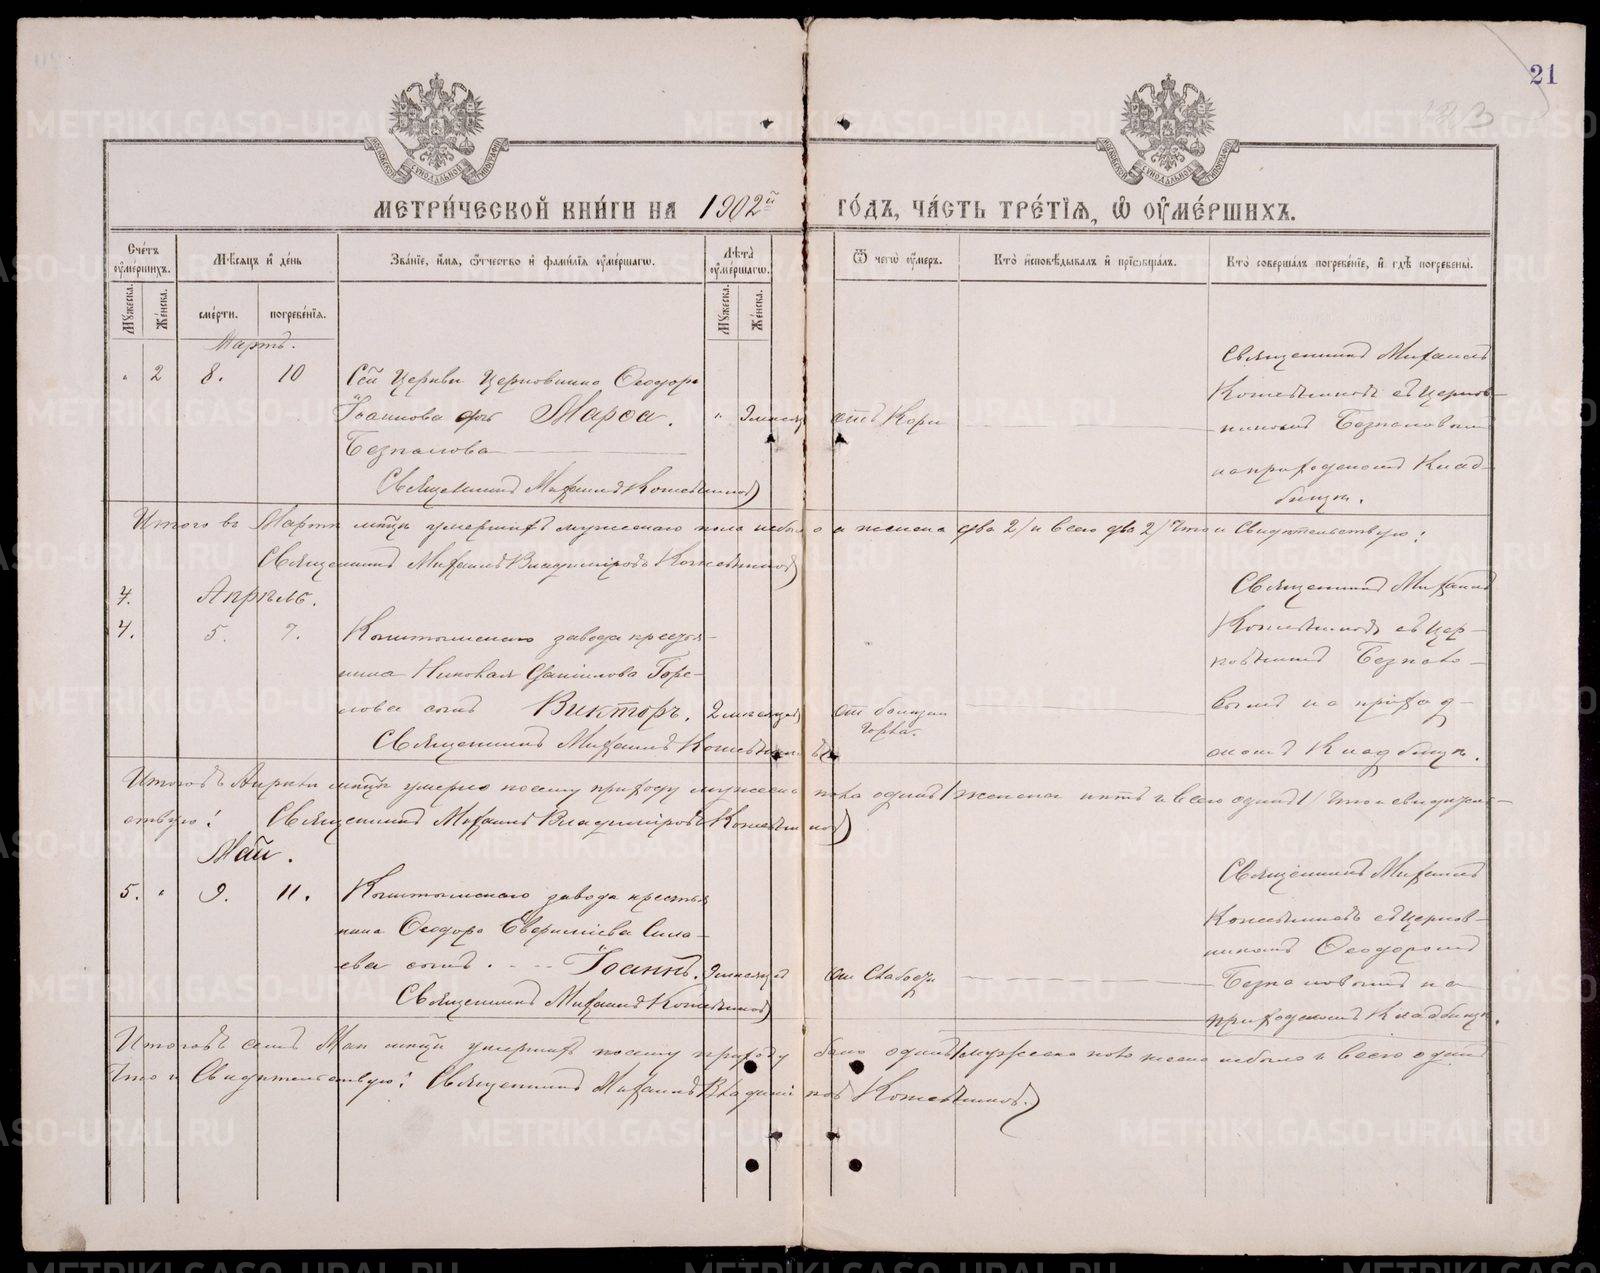 21
МЕТРИ́ЧЕСКОЙ КНИ́ГИ НА 1902й ГО́ДЪ, ЧА́СТЬ ТРЕ́ТІѦ, Ѡ ОУМЕ́РШИХЪ.
Сче́тъ оуме́ршихъ.
Мꙋжеска.
Же́нска.
Мѣ́сяцъ и де́нь
сме́рти.
погребе́нія.
Зва́ніе, и́мя, ѻ́тчество и фами́лія оуме́ршагѡ.
Лѣта̀ оуме́ршагѡ.
Мꙋжеска.
Же́нска.
Ѿ чегѡ̀ оу́меръ.
Кто̀ исповѣ́дывалъ и пріѡбща́лъ.
Кто̀ соверша́лъ погребе́ніе, и гдѣ̀ погребены̀.
Мартъ.
2 8. 10 Сей Церкви Церковника Ѳеодора
Іоаннова дочь Марѳа. 9 месяц отъ Кори
Безпалова
Священникъ Михаилъ Кожевниковъ
Священникъ Михаилъ
Кожевниковъ съ церков-
никомъ Безпаловымъ
на приходскомъ Клад-
бищѣ.
Итого въ Мартѣ мѣсяцѣ умершихъ мужескаго пола небыло а женска два 2/ и всего два 2/ Что и Свидѣтельствую!
Священникъ Михаилъ Владиміровъ Кожевниковъ
4. Апрѣль.
4. 5. 7. Кыштымскаго завода крестья-
нина Николая Даніилова Горе-
лова сынъ Викторъ. 2 месяцев от болезни горла.
Священникъ Михаилъ Кожевниковъ
Священникъ Михаилъ
Кожевниковъ съ Цер-
ковникомъ Безпало-
вымъ на приход-
скомъ Кладбищѣ.
Итого въ Апрѣлѣ мѣсяцѣ умерло посему приходу мужеска пола одинъ 1 женска нѣтъ и всего одинъ 1/ Что и свидѣтель-
ствую! Священникъ Михаилъ Владиміровъ Кожевниковъ
Май.
5. 9. 11. Кыштымскаго завода крестья
нина Ѳеодора Сила-
ева сынъ. Іоаннъ. 9 месяцев от Слабости
Священникъ Михаилъ Кожевниковъ
Священникъ Михаилъ
Кожевниковъ съ церков-
никомъ Ѳеодоромъ
Безпаловымъ на
приходскомъ Кладбищѣ.
Итого въ семъ Маѣ мѣсяцѣ умершихъ посему приходу было одинъ 1 мужеска пола женска небыло и всего одинъ
Что и Свидѣтельствую! Священникъ Михаилъ Владиміровъ Кожевниковъ.
METRIKI.GASO-URAL.RU